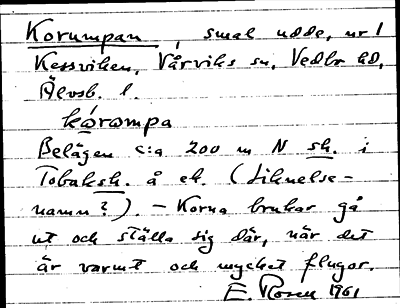 Korumpan, smal udde, nr 1
Kessviken, Vårviks sn, Vedbo hd,
Älvsb. l.
kórompa
Belägen c:a 200 m N sh. i
Tobaksh. å ek. (Liknelse-
namn?). – Korna brukar gå
ut och ställa sig där, när det
är varmt och mycket flugor.
E. Rosen 1961